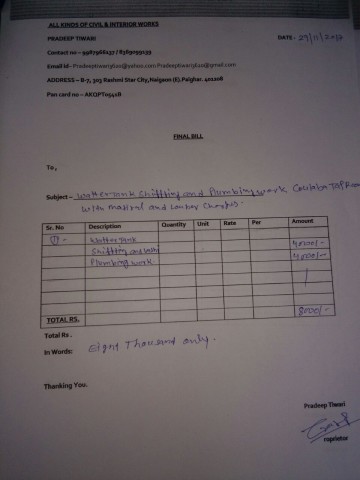 ALL KINDS OF CIVIL & INTERIOR WORKS
PRADEEP TIWARI
DATE- 29/11/2017
Contact no – 9987968237 / 8369099139
Email Id- Pradeeptiwari9820@yahoo.com Pradeeptiwari9820@gmail.com
ADDRESS – B-7, 303 Rashmi Star City, Naigaon (E). Palghar. 401208
Pan card no – AKQPT0542B
FINAL BILL
To,
Subject – Watter Tank Shiftting and Plumbing work
with matiral and Laubar Charges.
Sr. No Description Quantity Unit Rate Per Amount
1 - Watter Tank
Shiftting and 4000/-
Plumbing work 4000/-
TOTAL RS. 8000/-
Total Rs.
In Words: Eight Thousand only.
Thanking You.
Pradeep Tiwari
roprietor